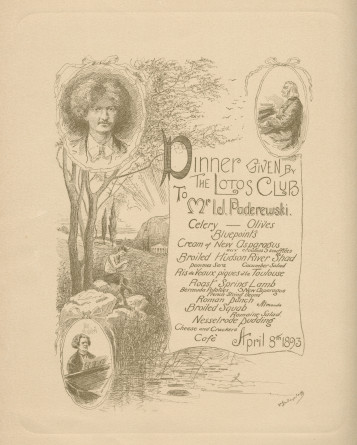 Dinner GIVEN BY
THE LOTOS CLUB
To Mr I.J. Paderewski.
Celery — Olives
Bluepoints
Cream of New Asparagus
Broiled Hudson River Shad
Cucumber Salad
Ris de Veaux piqués à la Toulouse
Roast Spring Lamb
Bermuda Potatoes New Asparagus
French String Beans
Roman Punch
Almonds
Broiled Squab
Romaine Salad
Nesselrode Pudding
Cheese and Crackers
Café
April 8th 1893